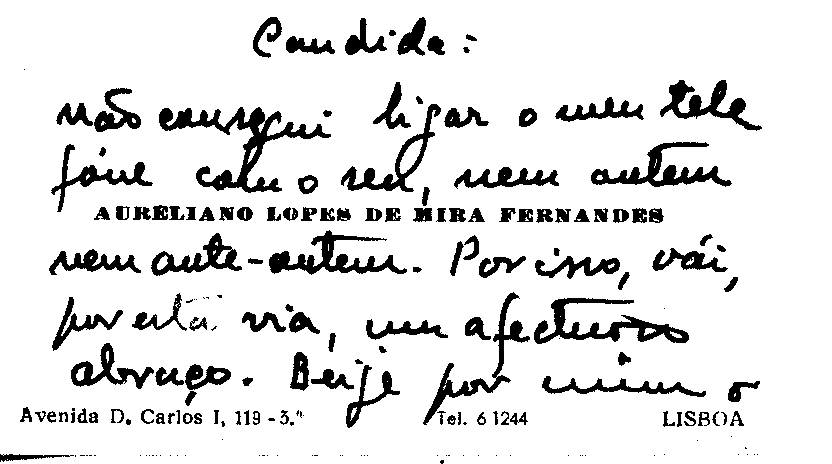 Candida:
não consegui ligar o meu tele
fóne com o seu, nem ontem
AURELIANO LOPES DE MIRA FERNANDES
nem ante-ontem. Por isso, vái,
por esta via, um afectuoso
abraço. Beije por mim o
Avenida D. Carlos I, 119 - 3.º Tel. 6 1244 LISBOA